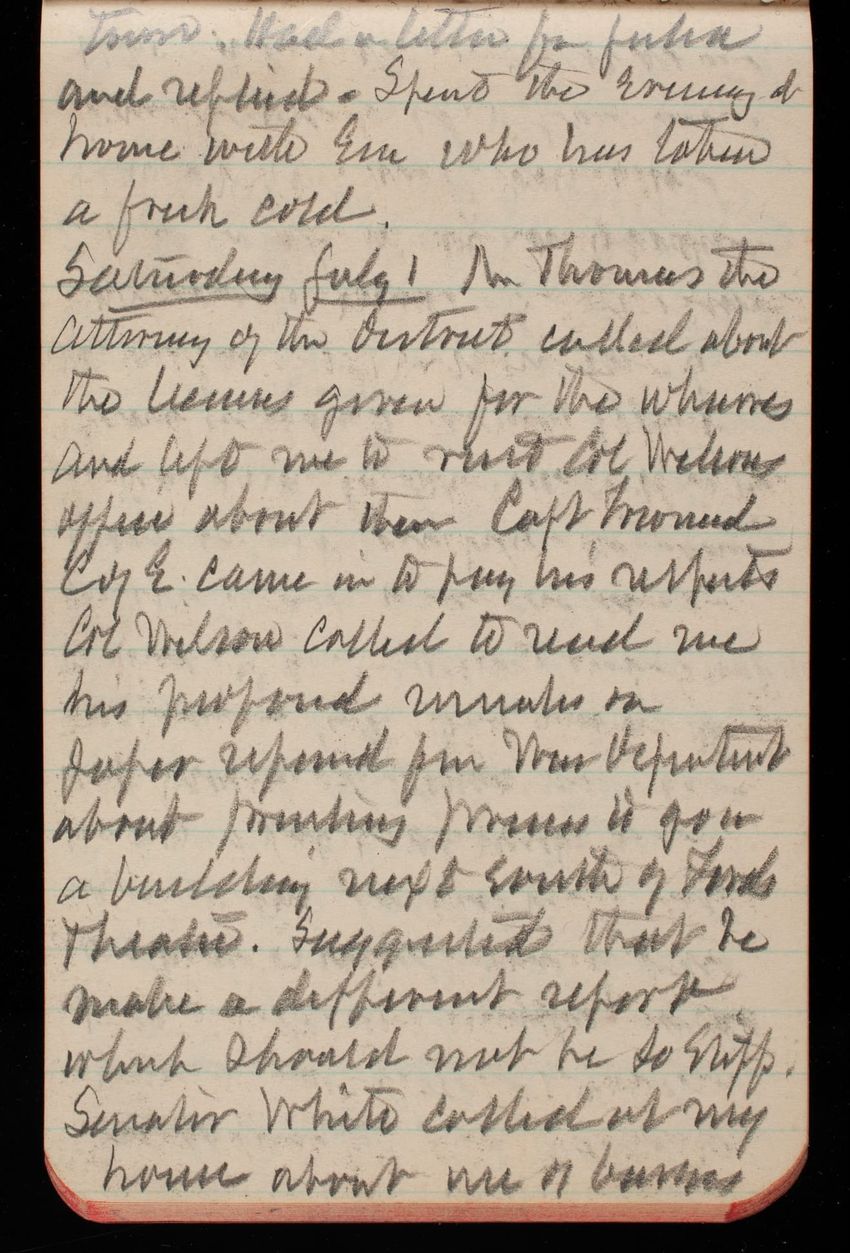 Had a letter fm Julia
and replied. Spent the Evening at
home with Em who has taken
a fresh cold.
Saturday July 1 Mr Thomas the
Attorney of the District called about
the licenses given for the wharves
and left me to visit Col Wilsons
office about them Capt Townsend
C of E. came in to pay his respects
Col Wilson called to read me
his proposed remarks on
paper referred fm War Department
about
a building next South of Fords
Theatre. Suggested that he
make a different report
which should not be so Stiff.
Senator White called at my
house about use of